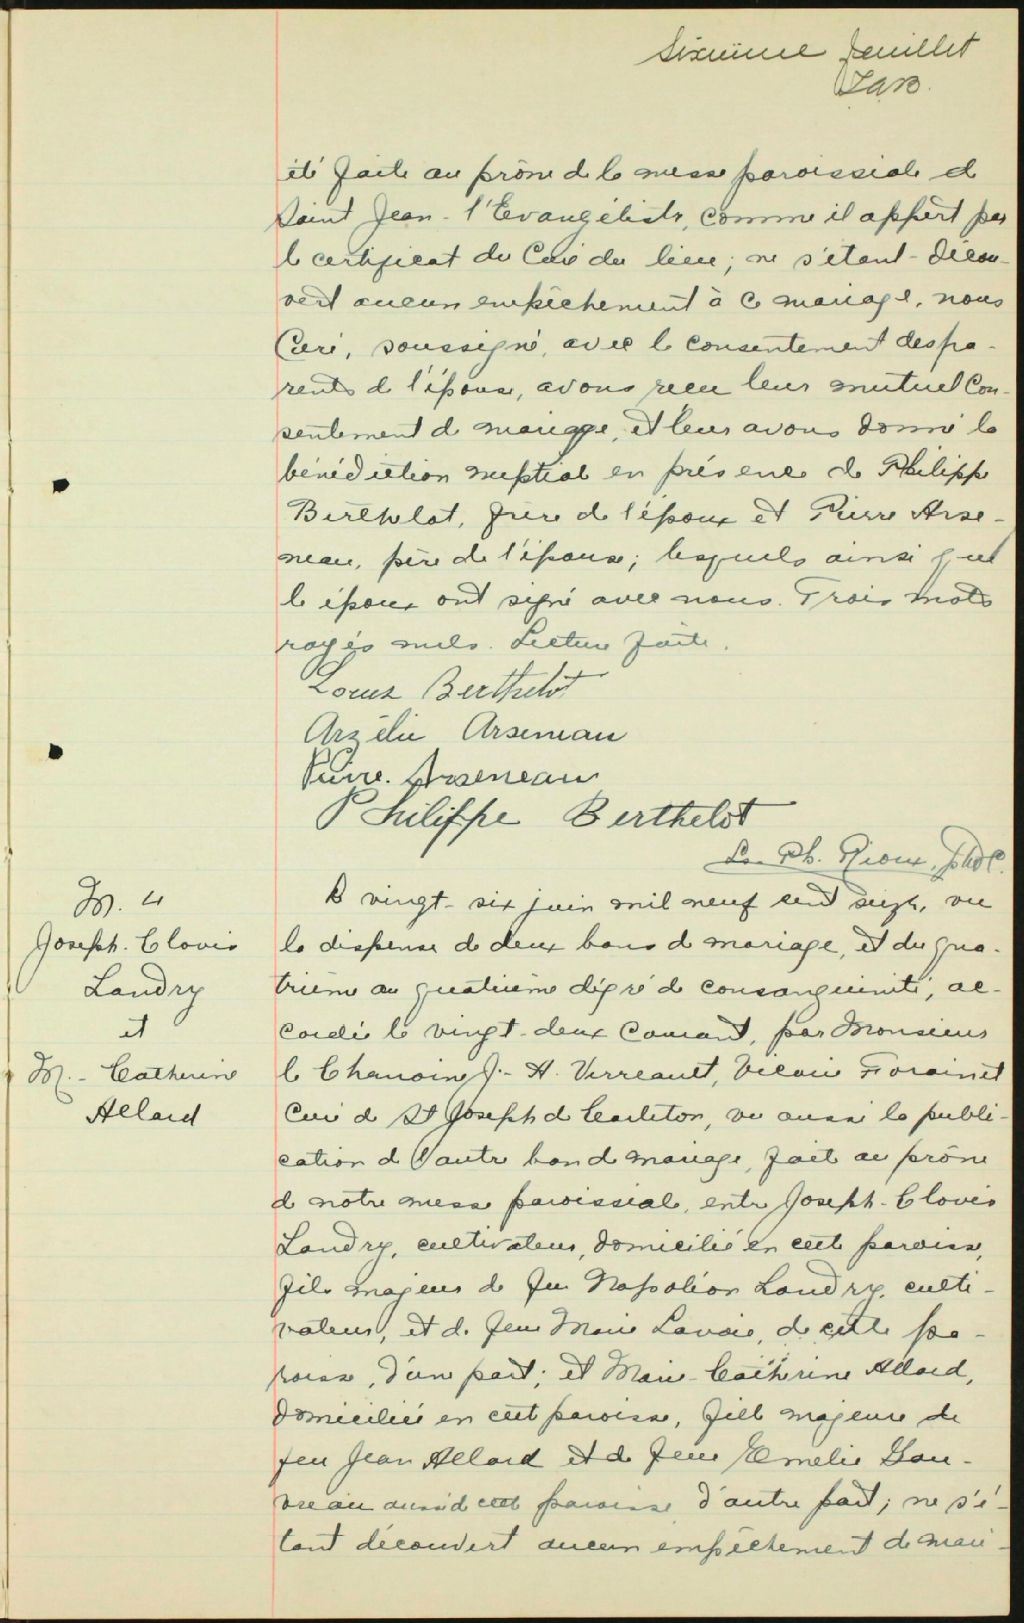 Sixième feuillet
été faite au prône de la messe paroissiale de
Saint Jean-l'Evangéliste, comme il appert par
le certificat du Curé du lieu; ne s'étant décou-
vert aucun empêchement à ce mariage, nous
Curé, soussigné, avec le consentement des pa-
rents de l'épouse, avons recu leur mutuel con-
sentement de mariage, et leur avons donné la
bénédiction nuptiale en présence de Philippe
Berthelot, frère de l'époux et Pierre Arse-
neau, père de l'épouse; lesquels ainsi que
le époux ont signé avec nous. Trois mots
rayés nuls. Lecture faite.
Louis Berthelot
Arzélie Arseneau
Pierre. Arseneau
Philippe Berthelot
Ls. Ph. Rioux, Ptre C.
M. 4
Joseph. Clovis
Landry
et
M.- Catherine
Allard
Le vingt-six juin mil neuf cent seize, vu
la dispense de deux bans de mariage, et du qua-
trième au quatrième dégré de consanguinité, ac-
cordée le vingt-deux courant, par Monsieur
le Chanoine J.-H. Verreault, Vicaire Forain et
Curé de St Joseph de Carleton, vu aussi la publi-
cation de l'autre ban de mariage, faite au prône
de notre messe paroissiale, entre Joseph-Clovis
Landry, cultivateur, domicilié en cette paroisse,
fils majeur de feu Napoléon Landry, culti-
vateur, et de feue Marie Lavoie, de cette pa-
roisse, d'une part; et Marie-Catherine Allard,
domiciliée en cette paroisse, fille majeure de
feu Jean Allard et de feue Emelie Gau-
vreau aussi de cette paroisse d'autre part; ne s'é-
tant découvert aucun empêchement de mari-